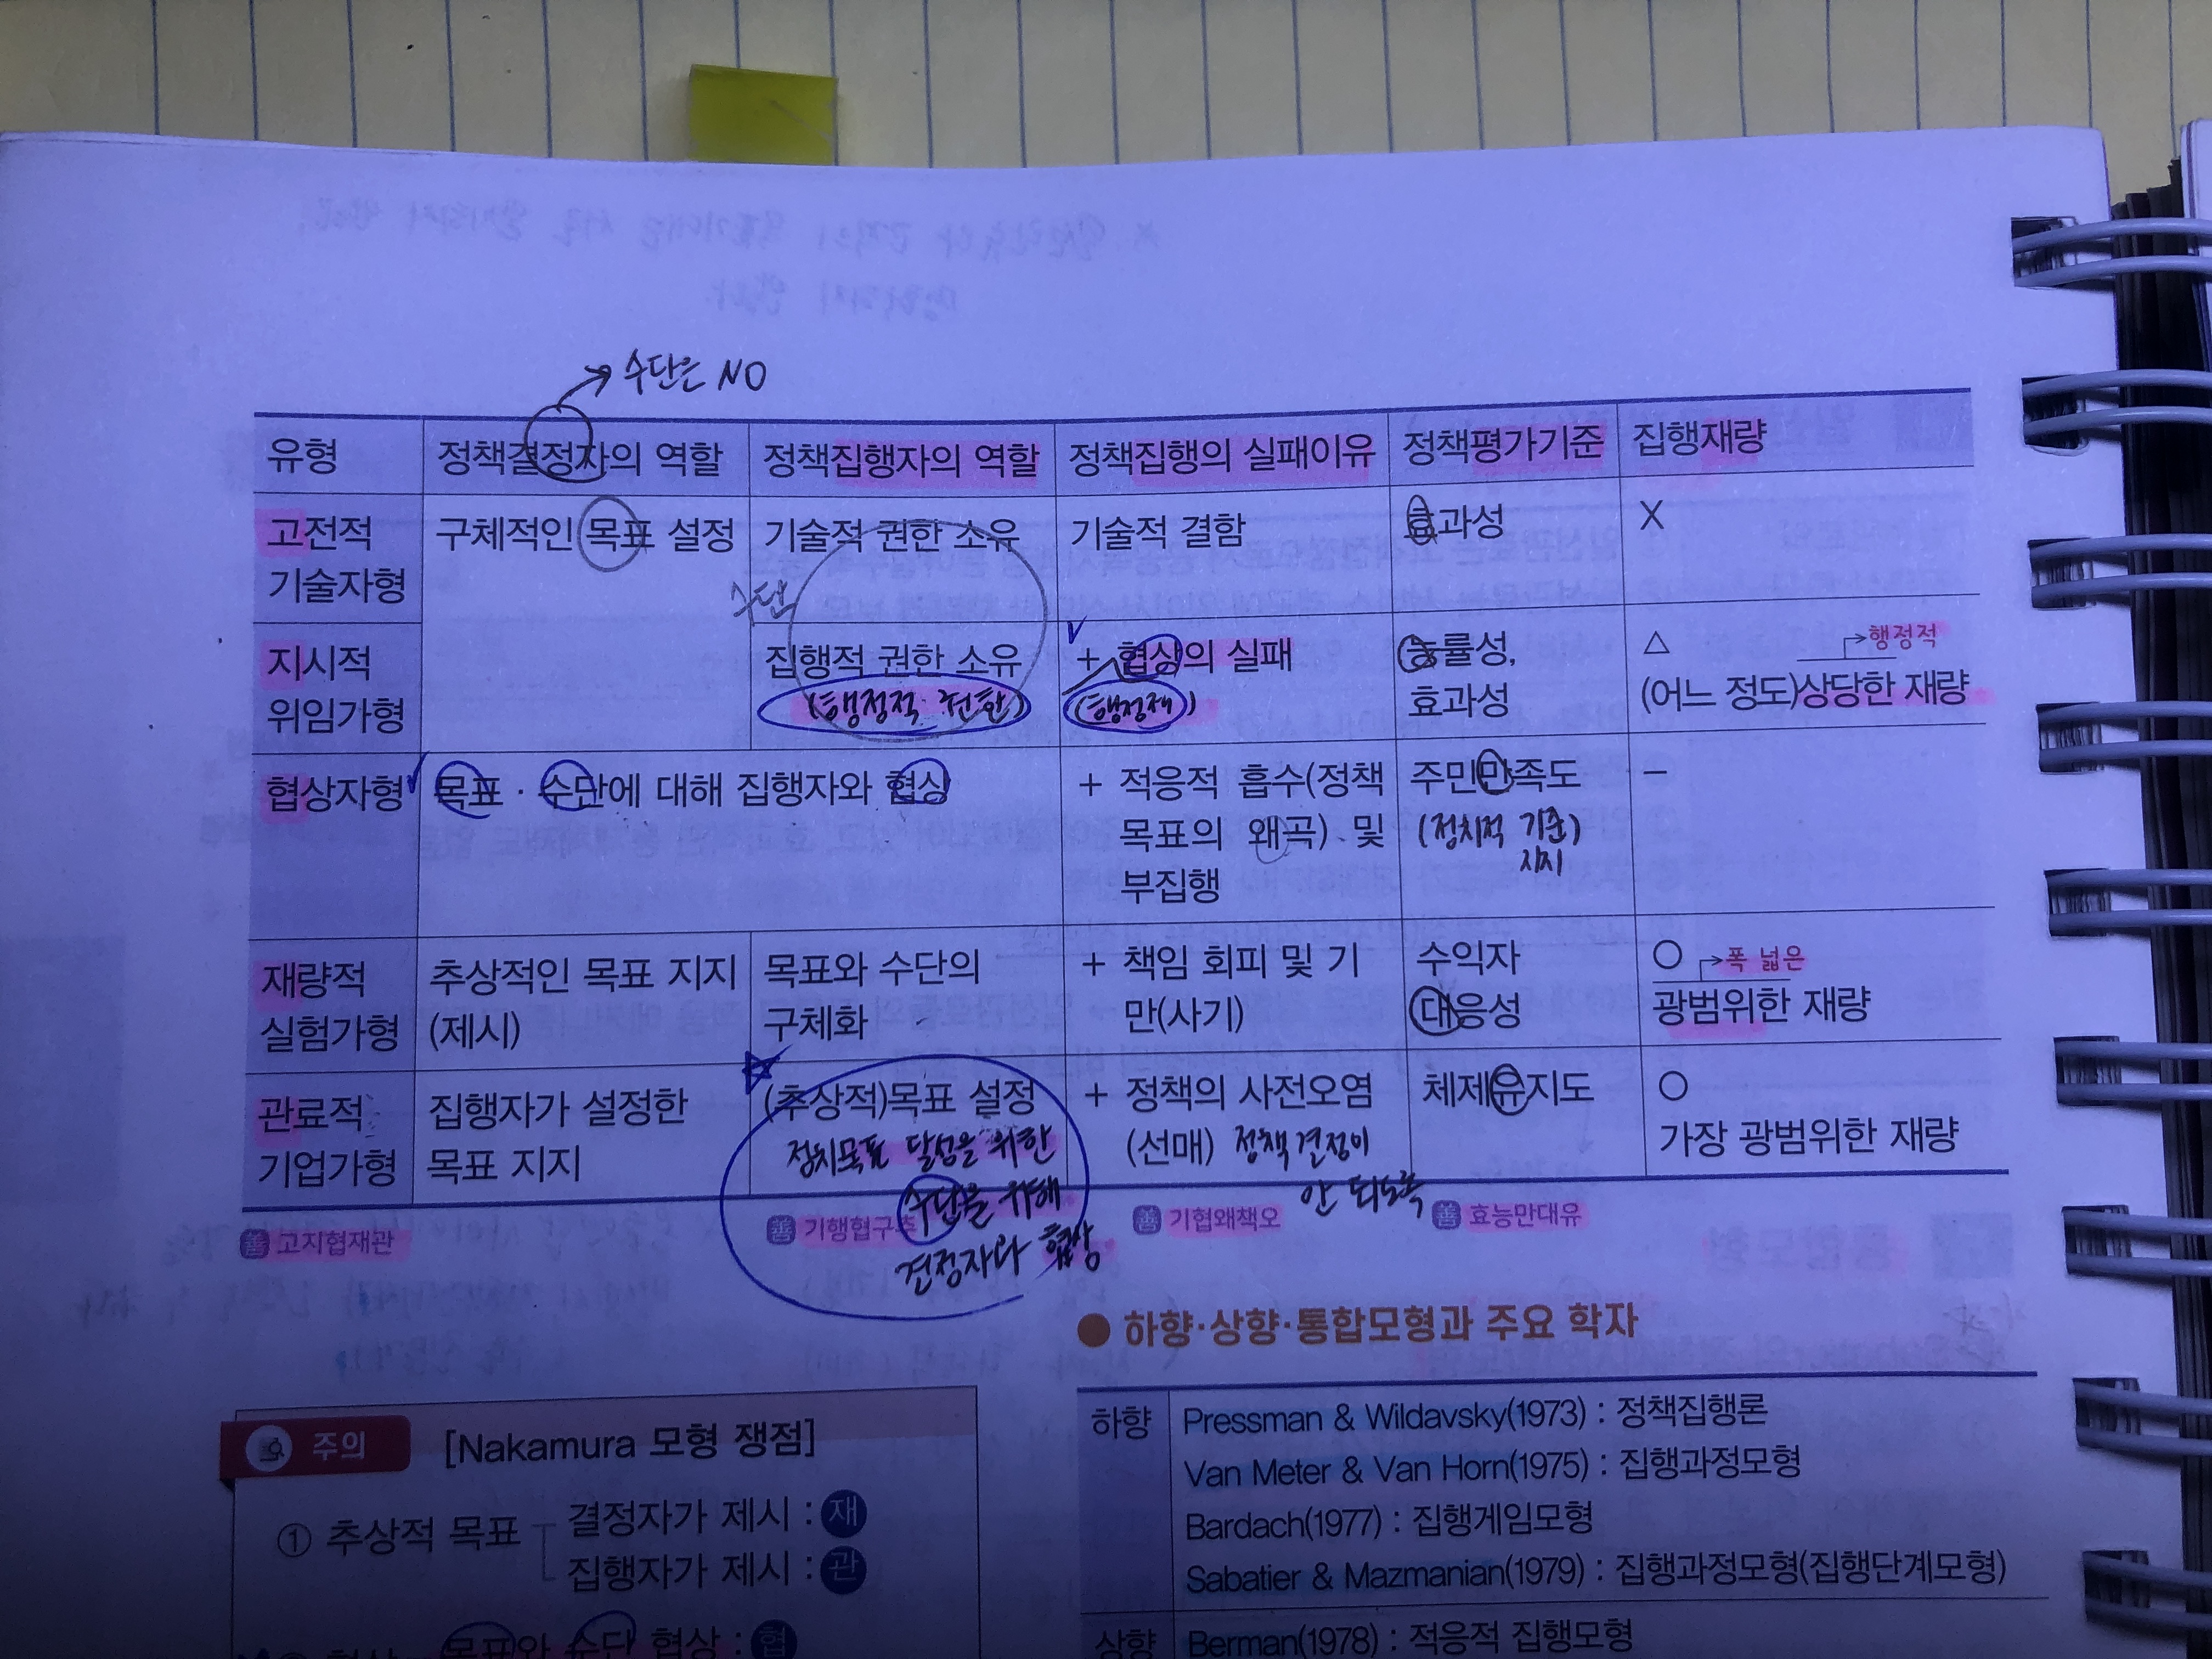 수단은 NO
유형 정책결정자의 역할 정책집행자의 역할 정책집행의 실패이유 정책평가기준 집행재량
고전적 기술자형
구체적인 목표 설정
기술적 권한 소유
기술적 결함
효과성
X
수단
지시적 위임가형
집행적 권한 소유
(행정적 권한)
+ 협상의 실패
(행정적)
능률성,
효과성
△ 행정적
(어느 정도)상당한 재량
협상자형
목표·수단에 대해 집행자와 협상
+ 적응적 흡수(정책
목표의 왜곡) 및
부집행
주민만족도
(정치적 기준)
지지
–
재량적
실험가형
추상적인 목표 지지
(제시)
목표와 수단의
구체화
+ 책임 회피 및 기
만(사기)
수익자
대응성
○ 폭 넓은
광범위한 재량
관료적
기업가형
집행자가 설정한
목표 지지
(추상적)목표 설정
정치목표 달성을 위한
수단을 위해
결정자와 협상
+ 정책의 사전오염
(선매) 정책결정이
안 되도록
체제유지도
○
가장 광범위한 재량
고지협재관
기행협구추
기협왜책오
효능만대유
● 하향·상향·통합모형과 주요 학자
하향
Pressman & Wildavsky(1973) : 정책집행론
Van Meter & Van Horn(1975) : 집행과정모형
Bardach(1977) : 집행게임모형
Sabatier & Mazmanian(1979) : 집행과정모형(집행단계모형)
상향
Berman(1978) : 적응적 집행모형
주의 [Nakamura 모형 쟁점]
① 추상적 목표
결정자가 제시 : 재
집행자가 제시 : 관
목표와 수단 협상 : 협